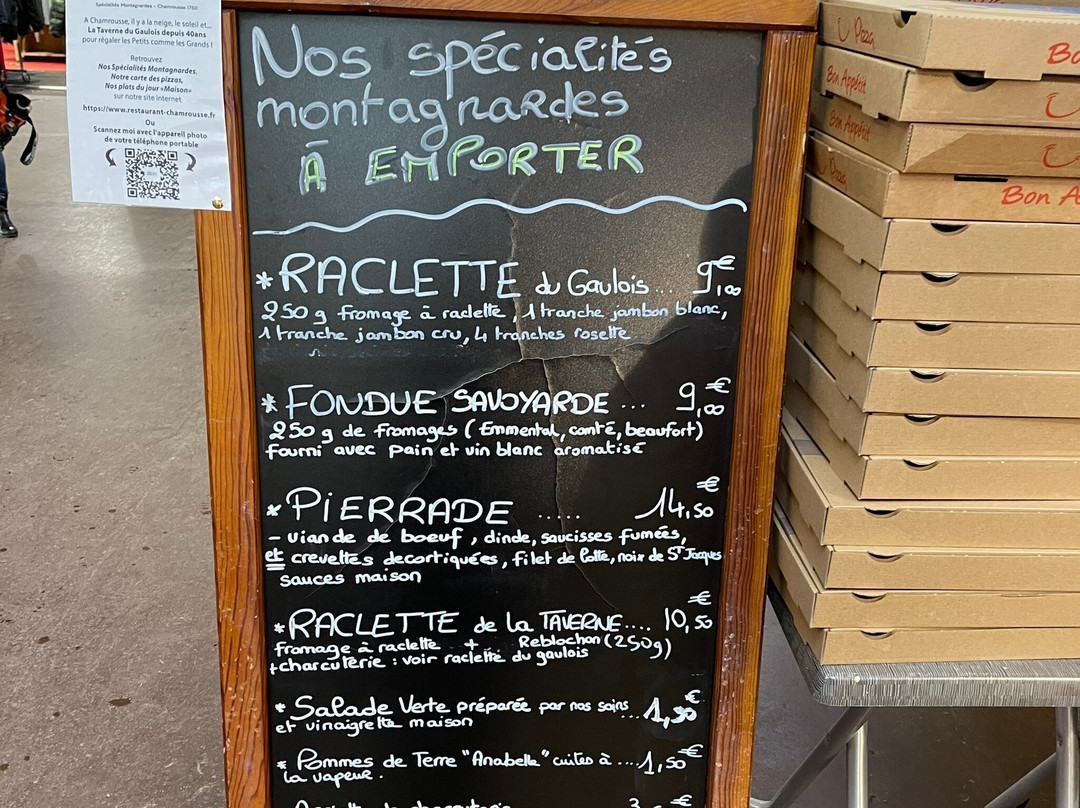 Spécialités Montagnardes - Chamrousse 1750
A Chamrousse, il y a la neige, le soleil et...
La Taverne du Gaulois depuis 40ans
pour régaler les Petits comme les Grands !
Retrouvez
Nos Spécialités Montagnardes,
Notre carte des pizzas,
Nos plats du jour «Maison»
sur notre site internet
https://www.restaurant-chamrousse.fr
Ou
Scannez moi avec l'appareil photo
de votre téléphone portable
Nos spécialités
montagnardes
À EMPORTER
* RACLETTE du Gaulois... 9,00€
250 g fromage à raclette, 1 tranche jambon blanc,
1 tranche jambon cru, 4 tranches rosette
* FONDUE SAVOYARDE ... 9,00€
250 g de fromages (Emmental, comté, beaufort)
fourni avec pain et vin blanc aromatisé
* PIERRADE ..... 14,50€
- viande de boeuf, dinde, saucisses fumées,
et crevettes decortiquées, filet de lotte, noix de St Jacques
sauces maison
* RACLETTE de la TAVERNE.... 10,50€
fromage à raclette + Reblochon (250g)
+charcuterie : voir raclette du gaulois
* Salade Verte préparée par nos soins... 1,50€
et vinaigrette maison
* Pommes de Terre "Anabelle" cuites à ....1,50€
la vapeur.
Pizza
Bon Appétit
Bon Appétit
Pizza
Bon A